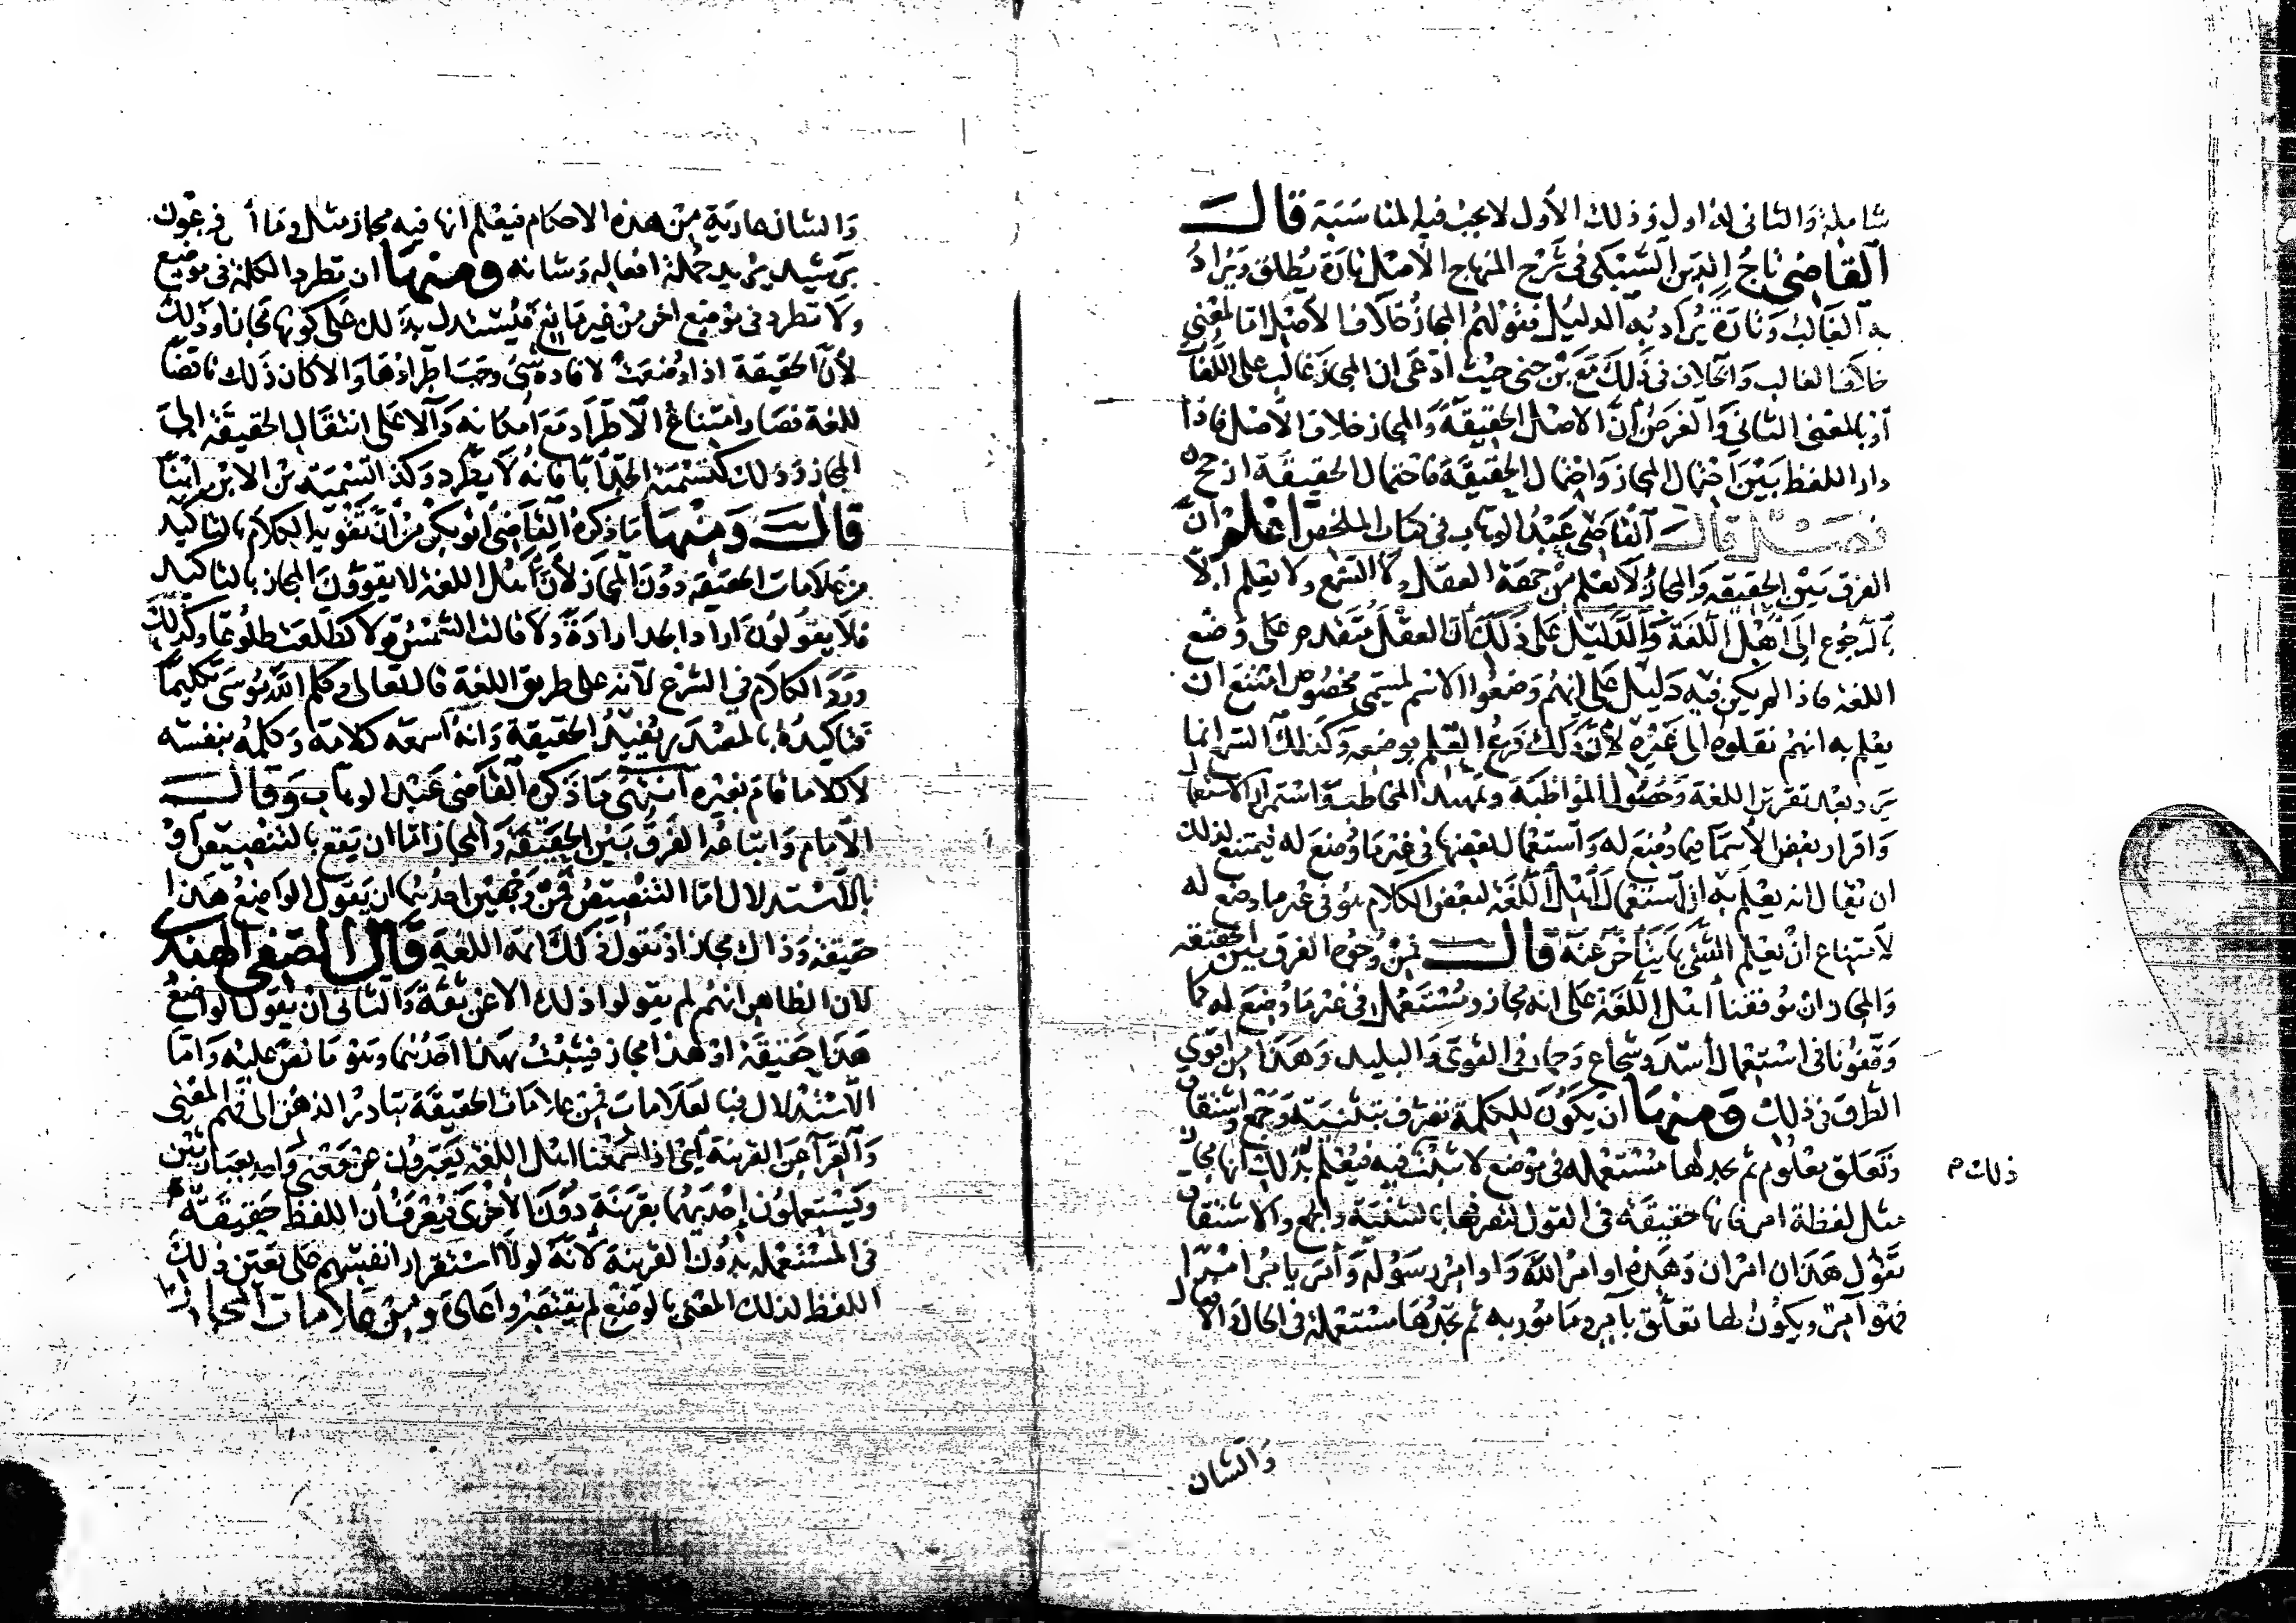 شاملة والثاني له اول وذلك الأول لا يجب فيه المناسبة قال
القاضي تاج الدين السبكي في شرح المنهاج الأصل تارة يطلق ويراد
به الغالب وتارة يراد به الدليل فقولهم المجاز خلاف الأصل اما بمعني
خلاف الغالب والخلاف في ذلك مع بن جني حيث ادعى ان المجاز غالب على اللغات
أو بالمعنى الثاني والغرض أن الاصل الحقيقة والمجاز خلاف الأصل فاذا
دار اللفظ بين احتمال المجاز واحتمال الحقيقة فاحتمال الحقيقة ارجح
فصل قال القاضي عبد الوهاب في كتاب الملخص اعلم ان
الفرق بين الحقيقة والمجاز لا يعلم من جهة العقل ولا السمع ولا يعلم الا
بالرجوع إلى أهل اللغة والدليل على ذلك أن العقل متقدم على وضع
اللغة فاذا لم يكن فيه دليل على انهم وضعوا الاسم لمسمى مخصوص امتنع ان
يعلم به انهم نقلوه الى غيره لأن ذلك فرع العلم بوضعه وكذلك السمع انما
يرد بعد تقرير اللغة وحصول المواظبة وتمهيد المخاطبة واستمرار الاستعمال
واقرار بعض الأسما فيما وضع له واستعمال بعضها في غير ما وضع له فيمتنع لذلك
ان يقال انه يعلم به ان استعمال أهل اللغة لبعض الكلام هو في غير ما وضع له
لامتناع ان يعلم الشي بما يتأخر عنه قال فمن وجوه الفرق بين الحقيقة
والمجاز ان يوقفنا أهل اللغة على انه مجاز ومستعمل في غير ما وضع له كما
وقفونا في استعمال أسد وشجاع وحمار في القوي والبليد وهذا من اقوي
الطرق في ذلك ومنها ان يكون للكلمة تصرف بتثنية وجمع واشتقاق
وتعلق بمعلوم ثم تجدها مستعملة في موضع لا يثبت فيه ذلك فيعلم بذلك انها مجاز
مثل لفظة امر فانها حقيقة في القول لتصرفها بالتثنية والجمع والاشتقاق
تقول هذان امران وهذه اوامر الله واوامر رسوله وأمر يأمر امرا
فهو آمر ويكون لها تعلق بآمر ومامور به ثم تجدها مستعملة في الحال والافعال
والشان
والشان عارية من هذه الاحكام فيعلم انها فيه مجاز مثل وما أمر فرعون
برشيد يريد جملة افعاله وشانه ومنها ان تطرد الكلمة في موضع
ولا تطرد في موضع اخر من غير مانع فيستدل بذلك على كونها مجازا وذلك
لأن الحقيقة اذا وضعت لافادة شي وجب اطرادها والا كان ذلك ناقضا
للغة فصار امتناع الاطراد مع امكانه دالا على انتقال الحقيقة الى
المجاز وذلك كتسمية الجد أبا فانه لا يطرد وكذا التسمية من الابن ابنا
قال ومنها ما ذكره القاضي أبو بكر من أن تقوية الكلام بالتاكيد
من علامات الحقيقة دون المجاز لأن أهل اللغة لا يقوون المجاز بالتاكيد
فلا يقولون اراد الجدار ارادة ولا قالت الشمس قولا كطلعت طلوعا وكذلك
ورد الكلام في الشرع لأنه على طريق اللغة قال تعالى وكلم الله موسى تكليما
فتاكيده بالمصدر يفيد الحقيقة وانه أسمعه كلامه وكلمه بنفسه
لا كلاما قام بغيره انتهى ما ذكره القاضي عبد الوهاب وقال
الامام واتباعه الفرق بين الحقيقة والمجاز اما ان يقع بالتنصيص أو
بالاستدلال اما التنصيص فمن وجهين احدهما ان يقول الواضع هذا
حقيقة وذاك مجاز او يقول ذلك ائمة اللغة قال الصفي الهندي
لان الظاهر انهم لم يقولوا ذلك الا عن ثقة والثاني ان يقول الواضع
هذا حقيقة او هذا مجاز فيثبت بهذا احدهما وهو ما نص عليه واما
الاستدلال فبالعلامات فمن علامات الحقيقة تبادر الذهن الى فهم المعنى
والعرآ عن القرينة أي اذا سمعنا اهل اللغة يعبرون عن معنى واحد بعبارتين
ويستعملون إحديهما بقرينة دون الأخرى فيعرف أن اللفظ حقيقة
في المستعملة بدون القرينة لأنه لولا استقرار انفسهم على تعين ذلك
اللفظ لذلك المعنى بالوضع لم يقتصروا عادة ومن علامات المجاز